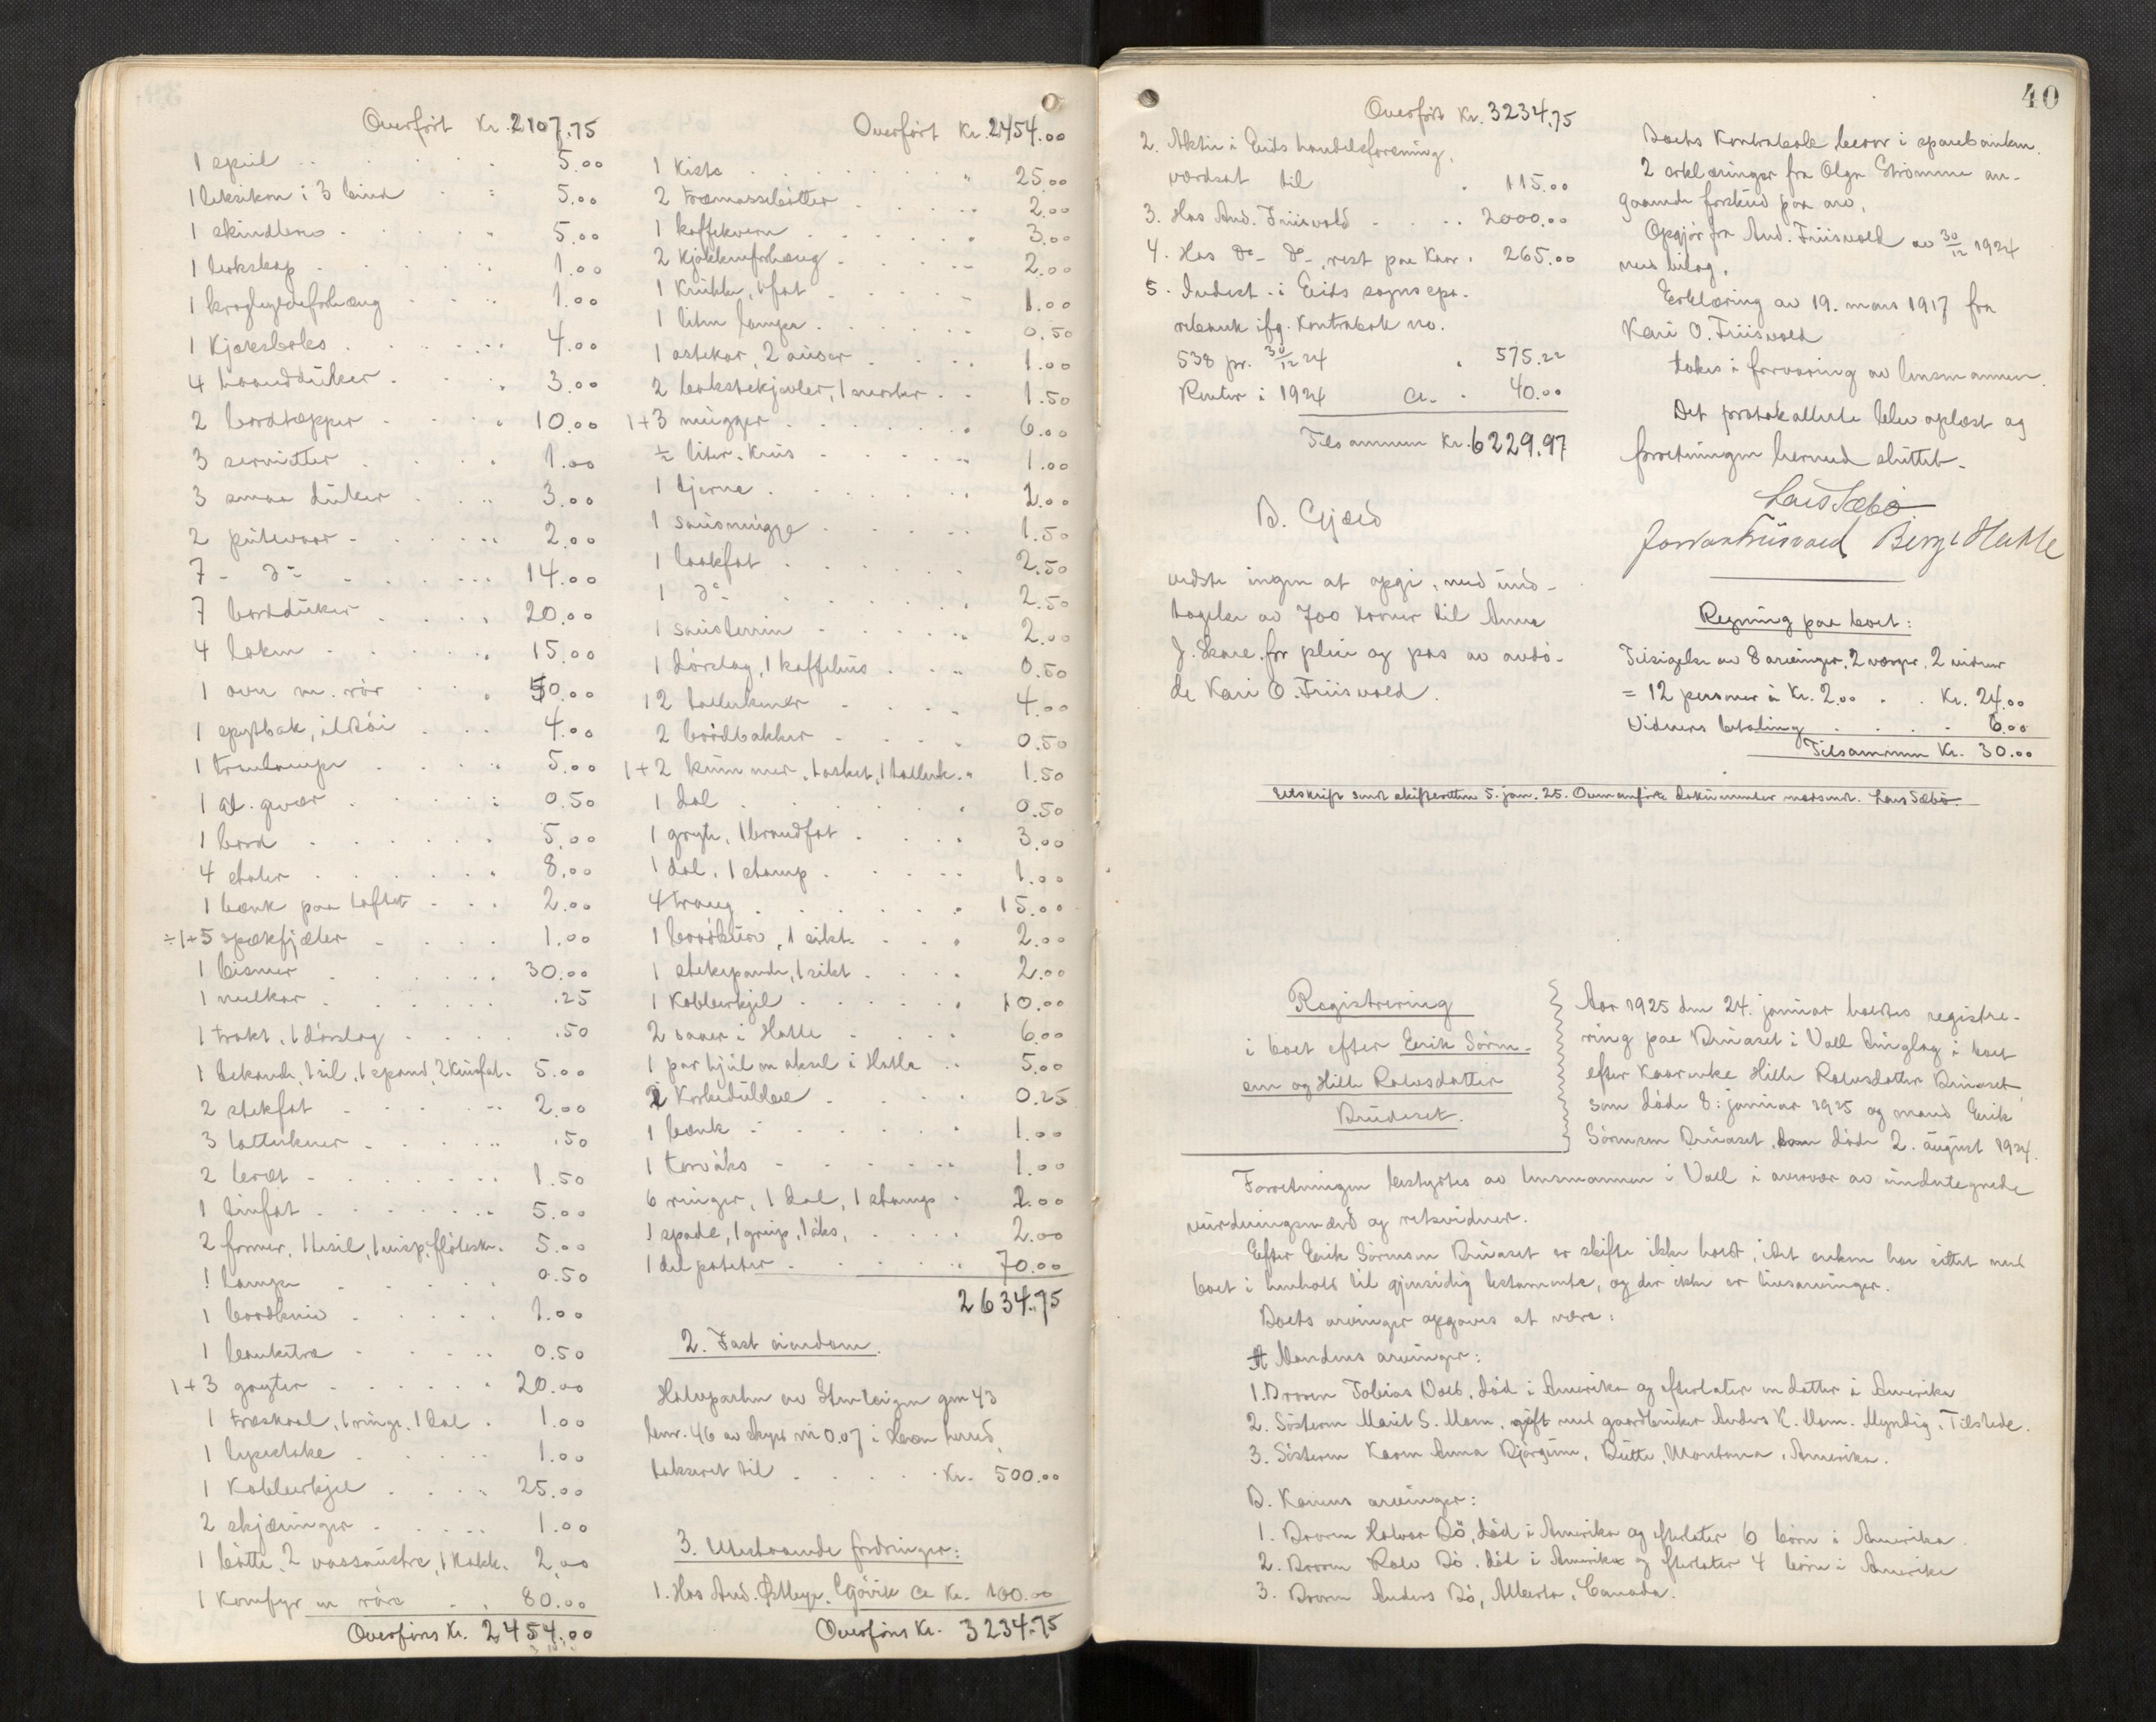 Overført Kr. 2107.75
1 speil . . . 5.00
1 leksikon i 3 bind . . 5.00
1 skindbro . . . 5.00
1 bokskap . . . 1.00
1 forhæng . . . 1.00
1 . . . 4.00
4 haandduker . . . 3.00
2 bordtæpper . . . 10.00
3 servietter . . . 1.00
3 smaa duker . . . 3.00
2 putevaar . . . 2.00
7 - do - . . . 14.00
7 bordduker . . . 20.00
4 laken . . . 15.00
1 ovn m. rør . . . 50.00
1 spytbak, ildkói . . . 4.00
1 . . . 5.00
1 gevær . . . 0.50
1 bord . . . 5.00
4 stoler . . . 8.00
1 bænk paa loftet . . . 2.00
÷1+5 spækfjæler . . . 1.00
1 bismer . . . 30.00
1 melkar . . . .25
1 trakt, 1 dørslag . . . .50
1 tekande, 1 sil, 1 spand, 2 . 5.00
2 stekfat . . . 2.00
3 tallerkner . . . .50
2 bret . . . 1.50
1 . . . 5.00
2 former, 1 tesil, 1 visp, . 5.00
1 lampe . . . 0.50
1 bordkniv . . . 1.00
1 banketræ . . . 0.50
1+3 gryter . . . 20.00
1 træskaal, 1 ringe, 1 dal . 1.00
1 lysestake . . . 1.00
1 kobberkjel . . . 25.00
2 skjæringer . . . 1.00
1 bøtte, 2 , 1 . 2.00
1 komfyr m rør . . 80.00
Overføres Kr. 2454.00
Overført Kr. 2454.00
1 kiste . . . 25.00
2 træmassebøtter . . . 2.00
1 kaffekvern . . . 3.00
2 kjøkkenforhæng . . . 2.00
1 krukke, 1 fat . . . 1.00
1 liten lampe . . . 0.50
1 ostekar, 2 auser . . . 1.00
2 bakstekjevler, 1 . . 1.50
1+3 mugger . . . 6.00
½ liter. krus . . . 1.00
1 tjerne . . . 2.00
1 sausmugge . . . 1.50
1 laakfat . . . 2.50
1 do - . . . 2.50
1 austerrin . . . 2.00
1 dørslag, 1 kaffehus . . . 0.50
12 tallerkener . . . 4.00
2 brødbakker . . . 0.50
1+2 kummer, 1 asket, 1 tallerk. 1.50
1 dal . . . 0.50
1 gryte, 1 brandfat . . . 3.00
1 dal, 1 stamp . . . 1.00
4 traug . . . 15.00
1 brødkurv, 1 sikt . . . 2.00
1 stekepande, 1 sikt . . . 2.00
1 kobberkjel . . . 10.00
2 sauer i Hatle . . . 6.00
1 par hjul m aksel i Hatle . . 5.00
2 . . . 0.25
1 bænk . . . 1.00
1 torvøks . . . 1.00
6 ringer, 1 dal, 1 stamp . 2.00
1 spade, 1 greip, 1 øks, . . . 2.00
1 del poteter . . . 70.00
2634.75
2. Fast eiendom.
Halvparten av gnr 43
bnr. 46 av skyld m 0.07 i herred,
takseret til . . . Kr. 500.00
3. Utestaaende fordringer:
1. Hos And. , Gjøvik ca Kr. 100.00
Overføres Kr. 3234.75
40
Overført Kr. 3234.75
2. Aktie i Eids handelsforening,
værdsat til . 115.00
3. Hos And. Friisvold . . . 2000.00
4. Hos do - do -, rest paa . 265.00
5. Indest. i Eids sogns spa-
rebank ifg. kontrabok no.
538 pr. 30/12 24 . 575.22
Renter i 1924 ca. . 40.00
Tilsammen Kr. 6229.97
B. Gjæld
vedste ingen at opgi, med und-
tagelse av 700 kroner til Anna
J. Skare for pleie og pas av avdø-
de Kari O. Friisvold.
Boets kontrabok beror i sparebanken.
2 erklæringer fra Olga Strømme an-
gaaende forskud paa arv,
Opgjør fra And. Friisvold av 30/12 1924
med bilag,
Erklæring av 19. mars 1917 fra
Kari O. Friisvold
tokes i forvaring av lensmannen.
Det protokollerte blev oplæst og
forretningen hermed sluttet.
Lars Sæbø
Friisvold Berge Hatle
Regning paa boet:
Tilsigelse av 8 arvinger, 2 værger, 2 vidner
= 12 personer à Kr. 2.00 . . Kr. 24.00
Vidners betaling . . . 6.00
Tilsammen Kr. 30.00
Utskrift sendt skifteretten 5. jan. 25. Ovenanførte dokumenter medsendt. Lars Sæbø
Registrering
i boet efter Erik Sørin-
sen og Hille Rolvsdatter
Bruaset.
Aar 1925 den 24. januar holdtes registre-
ring paa Bruaset i Voll tinglag i boet
efter kaarenke Hille Rolvsdatter Bruaset
som døde 8. januar 1925 og mand Erik
Sørensen Bruaset som døde 2. august 1924.
Forretningen bestyrtes av lensmannen i Voll i overvær av undertegnede
vurderingsmænd og retsvidner.
Efter Erik Sørensen Bruaset er skifte ikke holdt, idet enken har sittet med
boet i henhold til gjensidig testamente, og der ikke er livsarvinger.
Boets arvinger opgaves at være:
A Mandens arvinger:
1. Broren Tobias Voll, død i Amerika og efterlater en datter i Amerika
2. Søsteren Marit S. Moen, gift med gaardbruker Anders K. Moen. Myndig. Tilstede.
3. Søsteren Karen Anna Bjørgum, Butte, Montana, Amerika.
B. Konens arvinger:
1. Broren Halvor Bø, død i Amerika og efterlater 6 børn i Amerika.
2. Broren Rolv Bø, død i Amerika og efterlater 4 børn i Amerika
3. Broren Anders Bø, Alberta, Canada.